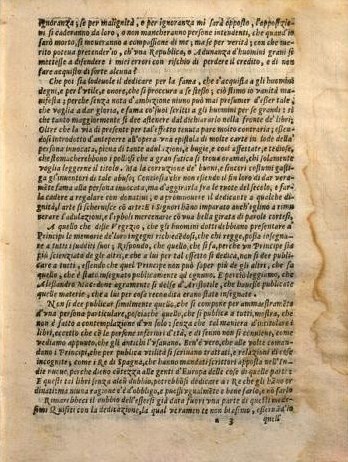 ignoranza; se per malignità, o per ignoranza mi sarà opposto, l'opposizioni
si caderanno da loro, o non mancheranno persone intendenti, che quand'io
sarò morto, si moveranno a compassione di me; ma se per verità; con che merito
poteua pretender'io, ch'vna Republica, o Adunanza d'huomini graui si
mettesse a difendere i miei errori con rischio di perdere il credito, e di non
fare acquisto di sorte alcuna?
Che poi sia lodeuole il dedicare per la fama, che s'acquista a gli huomini
degni, e per l'vtile, e onore, che si procura a se stesso; ciò stimo io vanità
manifesta; perche senza nota d'ambizione niuno può mai presumer d'esser tale,
che voglia a dar gloria, e fama co' suoi scritti a gli huomini per se grandi: si
che tanto maggiormente si dee astenere dal dichiararlo nella fronte de' libri;
Oltre che la via di presente per tal'effetto tenuta pare molto contraria; essendosi
introdotto d'anteporre all'opera vna epistola di molte carte in lode della
persona inuocata, piena di tante adulazioni, e bugie, e così affettate, e tediose,
che stomacherebbono i pollissi che a gran fatica si troua oramai, chi solamente
voglia leggerne il titolo. Ma la corruzione de' buoni, fiori esterni fugaggi
l'inuentori di tale abuso; Conciosia che non riescono il fin loro di dar veramente
fama alla persona inuocata, ma d'aggirarla fra le ruote del secolo, e farla
cadere a regalare con donatiui; o a promouere il dedicante a qualche dignità,
l'arte si scherniscie cõ arte: E i Signori hãno imparato anch'eglino a rimouerare
l'adulazioni, e l'epboli mercenarie cõ vna bella girata di parole cortesi.
A quello che disse l'egezio, che gli huomini dotti debbano presentare a
Principi le memorie de' loro ingegni ricbiededosi, che chi regge, possa insegnare
a tutti i sudditi suoi; Rispondo, che quello, che si sa, perche vn Principe sia
più scienziato de gli altri, e che a lui per tal effetto si dedica, non si dee publicare
a tutti, essendo che quel Principe non può saper più de gli altri, che sa
quello, che è stato insegnato publicamente ad ognuno. E perciò leggiamo, che
Alessandro Macedone agramente si dolse d'Aristotele, che hauesse publicate
quelle materie, che a lui per cosa recondita erano state insegnate.
Non si dee publicar similmente quello, che si compone per ammaestramẽto
d'vna persona particolare, posciache quello, che si publica a tutti, mostra, che
non è fatto a contemplazione d'vn solo: senza che tal maniera d'intitolare i
libri, eccetto che cõ le persone inferiori d'età, e di senno non si conuiene, come
vediamo appunto, che gli antichi l'vsauano. Ben'è vero, che alle volte comandano
i Principi, che per publica vtilità si scriuano trattati, e relazioni di cose
incognite, come i Re di Spagna, che hãno mandati scrittori apposta nell'Indie
nuoue, perche dieno cõtezza alle genti d'Europa delle cose di quelle parti:
E questi tai libri senza alcũ dubbio, potrebbõsi dedicare a i Re che gli hãno ordinati:
ma niuna ragione v'è d'obbligo, e puossi vgualmẽte e bene farlo, e nõ farlo.
Rimarrebbeci il dubbio dell'essersi già data fuori vna parte di questi medesimi
Quisiti con la dedicazione, la qual veramente non biasimo, essendo in
* 3 quell'